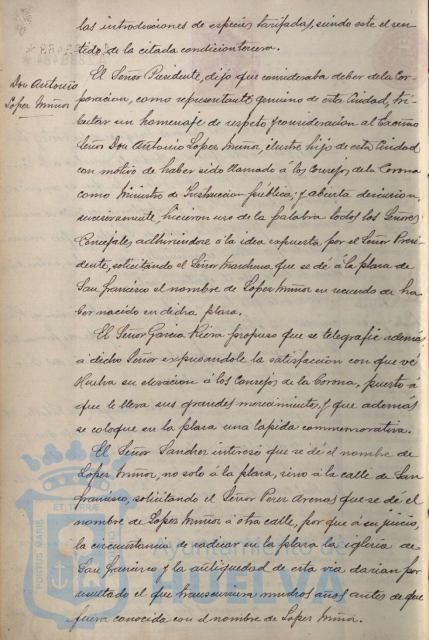 las introducciones de especies tarifadas, siendo este el sen-
tido de la citada condicion tercera.
Don Antonio
Lopez Muñoz
El Señor Presidente, dijo que consideraba deber de la Cor-
poracion, como representante genuino de esta Ciudad, tri-
butar un homenaje de respeto y consideracion al Excmo
Señor Don Antonio Lopez Muñoz, ilustre hijo de esta Ciudad
con motivo de haber sido llamado á los Consejos de la Corona
como Ministro de Instruccion pública; y abierta discusion,
sucesivamente, hicieron uso de la palabra todos los Señores
Concejales adhiriendose á la idea expuesta por el Señor Presi-
dente, solicitando el Señor Marchena que se dé á la plaza de
San Francisco el nombre de Lopez Muñoz en recuerdo de ha-
ber nacido en dicha plaza.
El Señor Garcia Riera propuso que se telegrafie además
á dicho Señor expresandole la satisfaccion con que vé
Huelva su elevacion á los Consejos de la Corona, puesto á
que le lleva sus grandes merecimientos, y que además
se coloque en la plaza una lapida conmemorativa.
El Señor Sanchez interesó que se dé el nombre de
Lopez Muñoz, no solo á la plaza, sino á la calle de San
Francisco, solicitando el Señor Perez Arenas que se dé el
nombre de Lopez Muñoz á otra calle, por que á su juicio,
la circunstancia de radicar en la plaza la iglesia de
San Francisco y la antiguedad de esta via darian por
resultado el que transcurriera muchos años antes de que
fuera conocida con el nombre de Lopez Muñoz.
Ayuntamiento de
HUELVA
PORTUS MARIS
ET TERRÆ